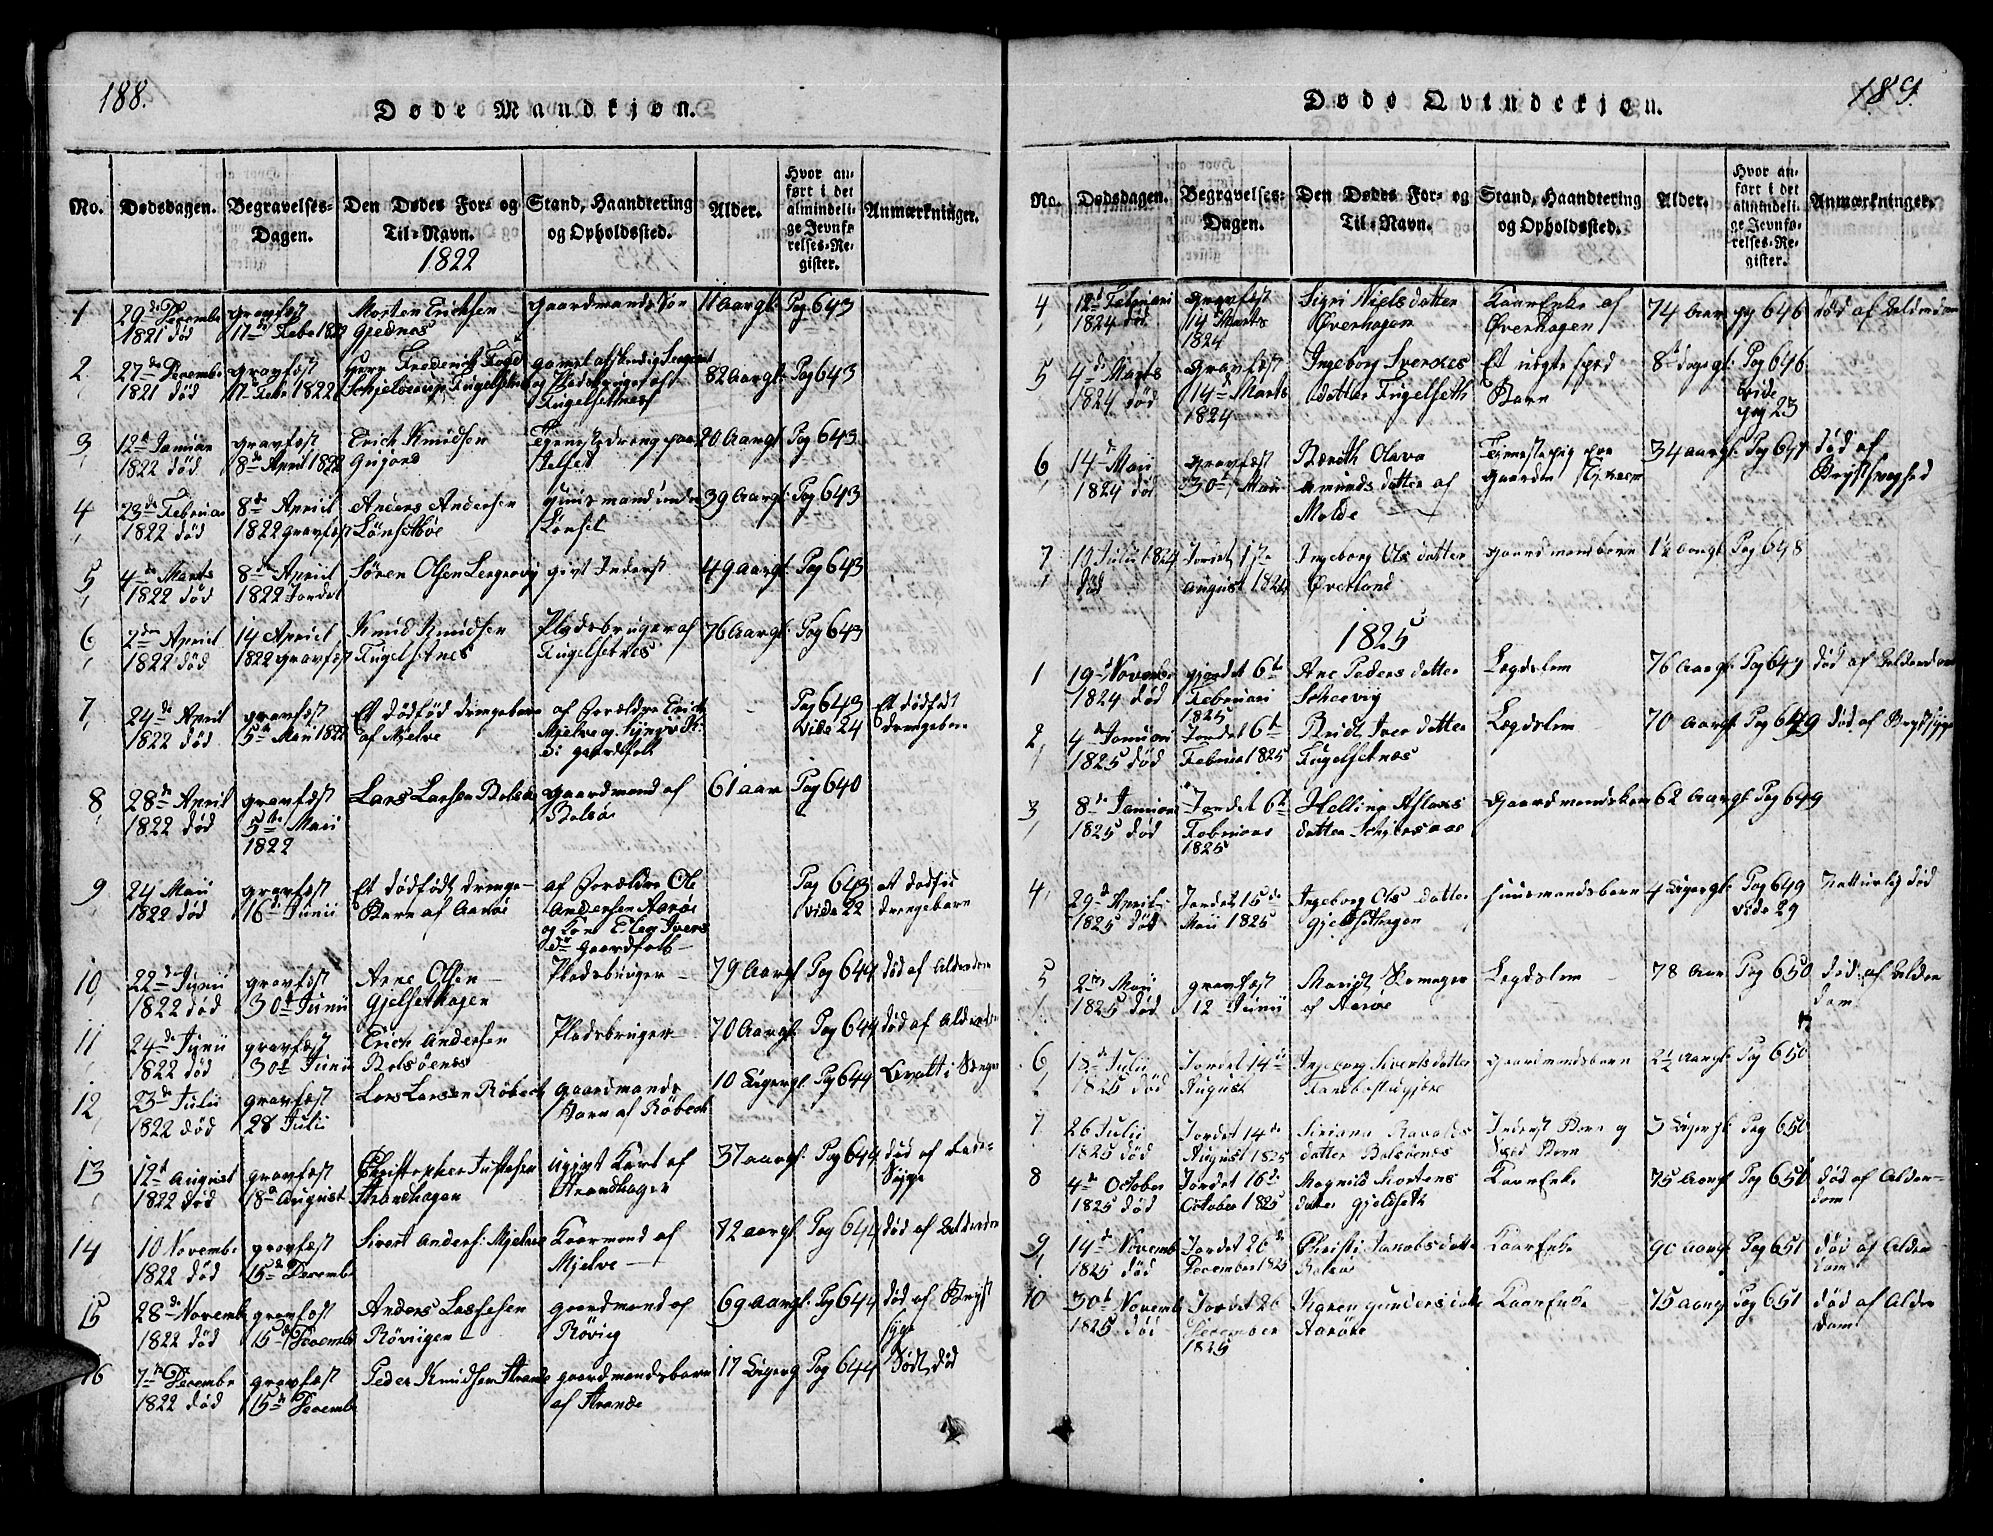 188.
Døde Mandkjøn.
No. Dødsdagen. Begravelses-Dagen. Den Dødes For- og Til-Navn. Stand, Haandtering og Opholdssted. Alder. Hvor anført i det almindelige Jevnførelses-Register. Anmærkninger.
1822
1 29de Decembr 1821 død gravfæst 17de Febr 1822 Morten Erichsen Gjednes gaardmands Søn 11 Aargl: Pag 643
2 27de Decembr 1821 død gravfæst 17de Febr 1822 Herr Frederich gamel afskendig Sergeant og Pladsbruger Fugelsetnes 82 Aargl: Pag 643
3 12te Januar 1822 død gravfæst 8de April 1822 Erich Knudsen 20 Aargl Pag 643
4 23de Februar 1822 død 8de April 1822 gravfæst Anders Andersen Lønsetbøe huusmand under Lønset 39 Aargl: Pag 643
5 4de Marts 1822 død 8de April 1822 Jordet Søren Olsen Lergrovig givt Inderst 49 aargl Pag 643
6 2den April 1822 død 14 April 1822 gravfæst Knud Knudsen Fugelsetnes Pladsbruger af Fugelsetnes 76 Aargl: Pag 643
7 24de April 1822 død gravfæst 5te Maii 1822 Et dødfød drengebarn af Mjelve af Forældre Erich Mjelve og gaardfolk Pag 643 vide 24 Et dødfødt drengebarn
8 28de April 1822 død gravfæst 5te Maii 1822 Lars Larsen Bolsøe gaardmand af Bolsøe 61 aar Pag 640
9 24 Maii 1822 død gravfæst 16de Junii Et dødfødt drenge-Barn af Aarøe af Forældre Ole Andersen Aarøe og Kone Eleg Ivers dr gaardfolk Pag 643 vide 22 et dødfød drengebarn
10 22de Junii 1822 død gravfæst 30te Junii Arne Olsen Gjelsethagen Pladsbruger 79 Aargl Pag 644 død af Alderdom
11 24de Junii 1822 død gravfæst 30te Junii Erich Andersen Bolsøenes Pladsbruger 70 Aargl. Pag 644 død af Alderdom
12 23de Julii 1822 død gravfæst 28 Julii Lars Larsen Røbeck gaardmands Barn af Røbeck 10 Ugergl Pag 644 qvalt i Sengen
13 12te August 1822 død gravfæst 18de August Christopher Justesen Strandhagen ugivt Karl af Strandhagen 37 aargl. Pag 644 død af Syge
14 10 Novembr 1822 død gravfæst 15de Decembr Sivert Anders: Mjelve Kaarmand af Mjelve 72 aargl Pag 644 død af Alderdom
15 28de Novembr 1822 død gravfæst 15de Decembr Anders Lassesen Røvigen gaardmand af Røvig 69 Aargl: Pag 644 død af Bryst syge
16 7de Decembr 1822 død gravfæst 15de Decembr Peder Knudsen Strande gaardmandsbarn af Strande 17 Ugergl Pag 644 Sødt død
189.
Døde Qvindekjøn.
No. Dødsdagen. Begravelses-Dagen. Den Dødes For- og Til-Navn. Stand, Haandtering og Opholdssted. Alder. Hvor anført i det almindelige Jevnførelses-Register. Anmærkninger.
4 12te Februari 1824 død gravfæst 14 Marts 1824 Sigri Niels datter Øverhagen KaarEnke af Øverhagen 74 Aar pag 646 død af Alderdom
5 4de Marts 1824 død gravfæst 14de Marts 1824 Ingeborg datter Fugelseth Et spæd Barn 8te dagegl: Pag 646 vide pag 23
6 14de Maii 1824 død gravfæst 30te Maii Bereth Olava Amunds datter af Molde Tienestepig paa gaarden 34 aargl: Pag 647 død af Brystsvaghed
7 19 Julii 1824 død Jordet 1ste August 1824 Ingeborg Ols datter Øverland gaardmandbarn 1½ aargl Pag 648
1825
1 19de Novembr 1824 død jordet 6te Februari 1825 Ane Peders datter Scheevig Legdslem 76 Aargl: Pag 649 død af Alderdom
2 4de Januari 1825 død Jordet 6te Februar 1825 Iver datter Fugelsetnes Legdslem 70 Aargl: Pag 649 død af Brystsyge
3 8de Januar 1825 død Jordet 6te Februar 1825 Aslaks datter gaardmandskone 62 Aargl Pag 649
4 29de April 1825 død Jordet 15de Maii 1825 Ingeborg Ols datter Gjelsethagen huusmandsbarn 4 Ugergl: Pag 649 vide 29 Naturlig død
5 2den Maii 1825 død gravfæst 12 Junii Marit af Aarøe Legdslem 78 Aar Pag 650 død af Alderdom
6 13de Julii 1825 død Jordet 14de August Ingeborg Siverts datter gaardmandsbarn 2½ Aargl Pag 650
7 26 Julii 1825 død Jordet 14de August 1825 Siriana datter Bolsøenes Inderst Barn og 3 Ugergl Pag 650
8 4de October 1825 død Jordet 16de October 1825 Magnild Mortens datter Gjelseth KaarEnke 75 Aargl Pag 650 død af Alderdom
9 14de Novembr 1825 død Jordet 26de December 1825 Christi Jacobs datter Bolsøe KaarEnke 90 Aargl Pag 651 død af Alderdom
10 30te Novembr 1825 død Jordet 26 December 1825 Karen gunders datter Aarøe KaarEnke 75 aargl Pag 651 død af Alderdom